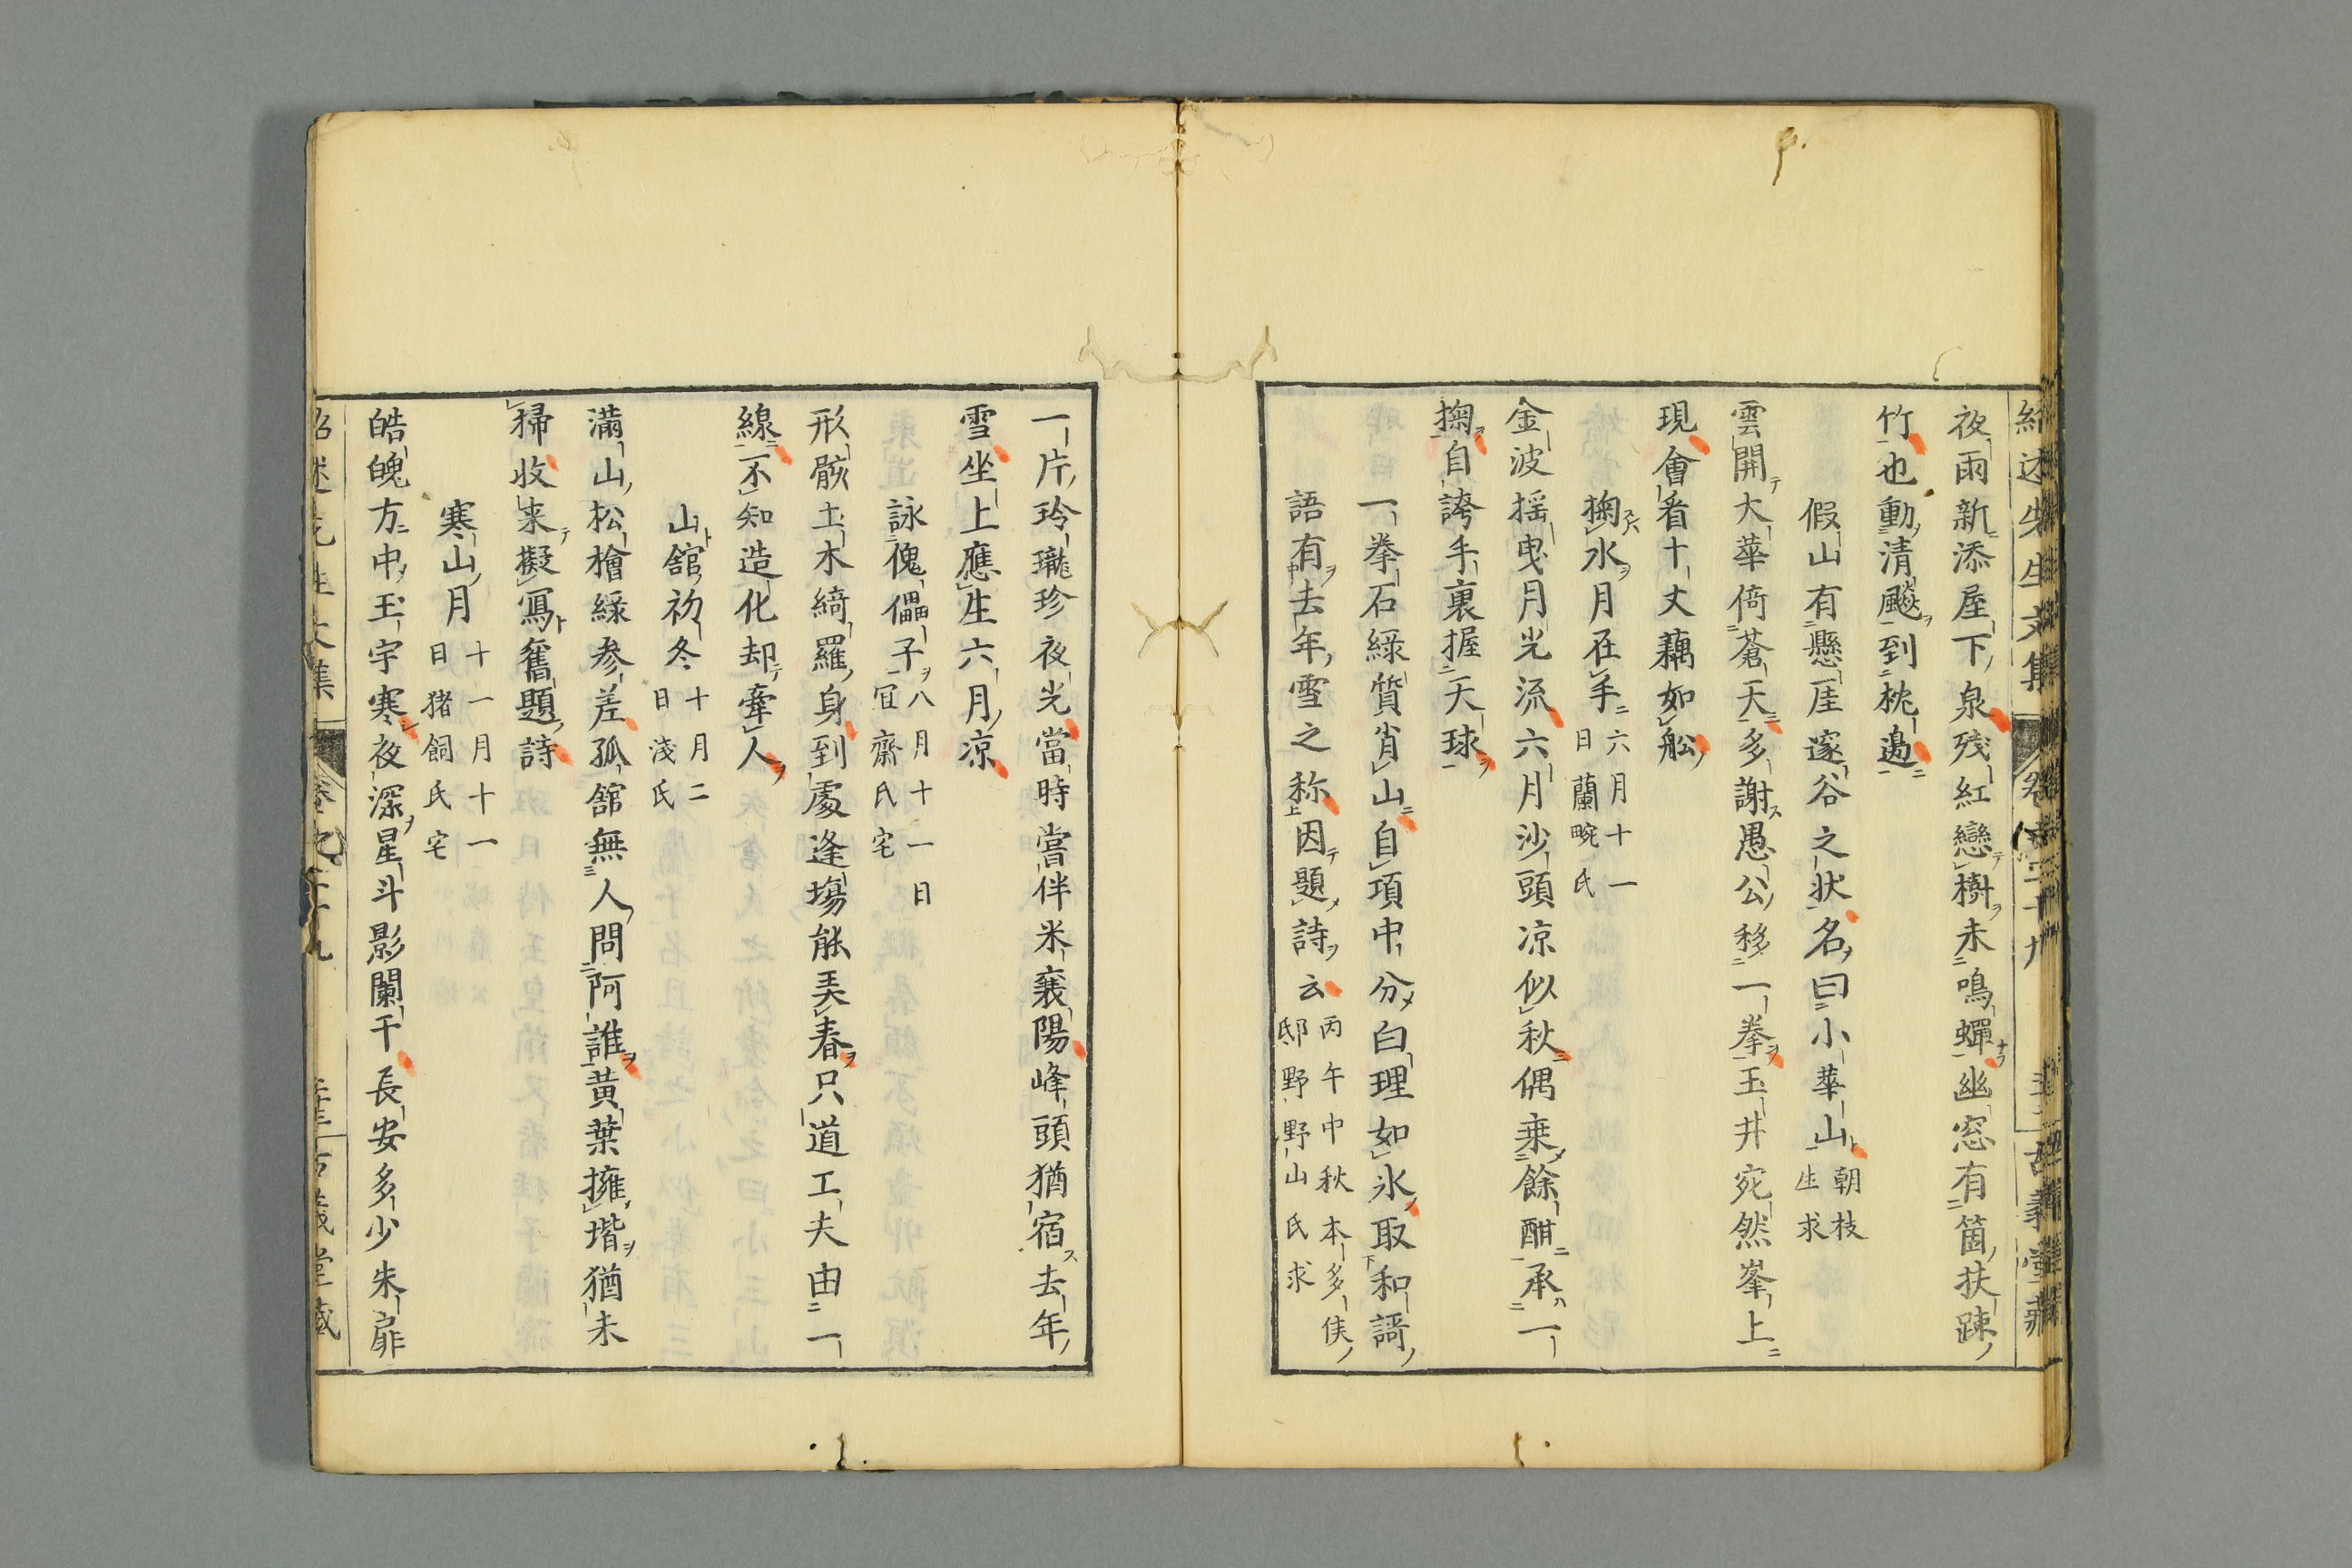 夜雨新添屋下泉残紅戀樹未鳴蟬幽窓有箇扶踈
竹也動清飈到枕邊
假山有懸厓邃谷之状名曰小華山朝枝
生求
雲開大華倚蒼天多謝愚公移一拳玉井宛然峯上
現會看十丈藕如舩
掬水月在手六月十一
日蘭畹氏
金波揺曳月光流六月沙頭凉似秋偶乗餘酣承一
掬自誇手裏握天球
一拳石緑質肖山自項中分白理如氷取和謌
語有去年雪之称因題詩云丙午中秋本多侯
邸野野山氏求
一片玲瓏珍夜光當時嘗伴米襄陽峰頭猶宿去年
雪坐上應生六月凉
詠傀儡子八月十一日
冝齋氏宅
形骸土木綺羅身到處逢塲能弄春只道工夫由一
線不知造化却牽人
山舘初冬十月二
日淺氏
満山松檜緑参差孤舘無人問阿誰黄葉擁堦猶未
掃收来擬寫舊題詩
寒山月十一月十一
日猪飼氏宅
皓魄方中玉宇寒夜深星斗影闌干長安多少朱扉